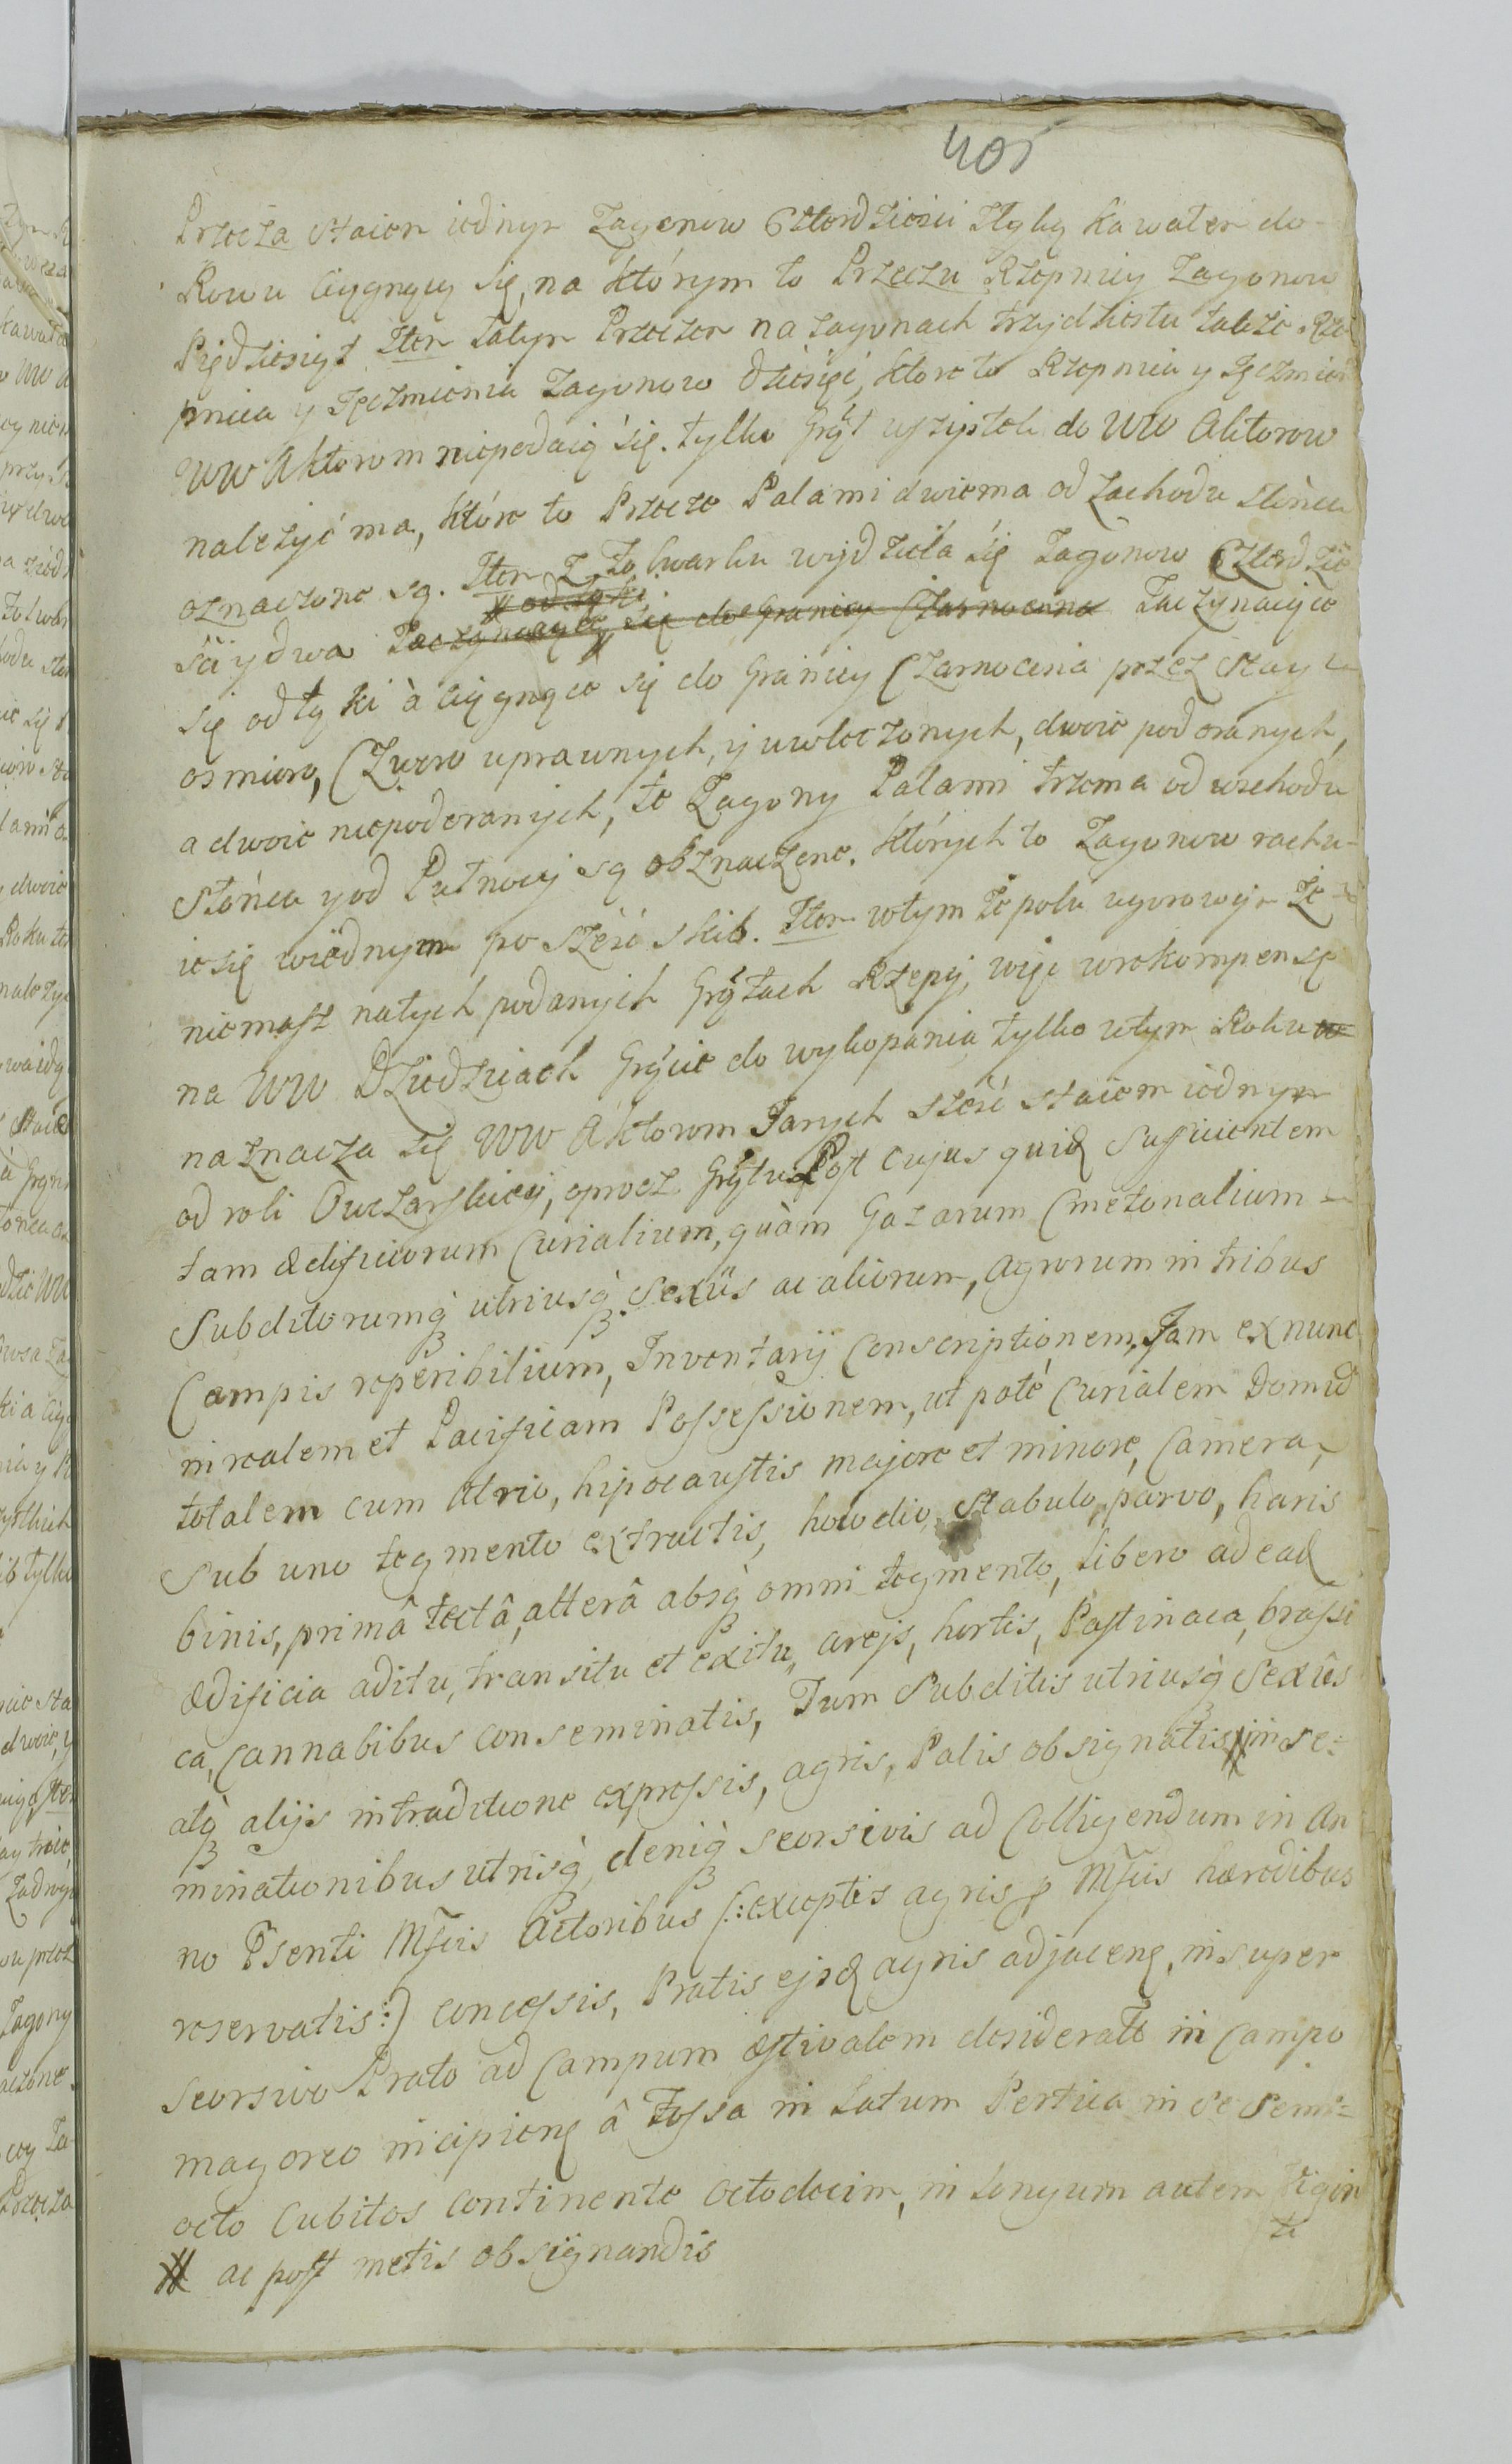 405
Przecza staien iednym Zagonow Czterdziesci y kawałek do
Rowu ciągnący się, na którym to Przeczu Rzepnicy Zagonow
Pięćdziesiąt Item całym Przeczem na zagonach trzydziestu także Rze
pnica y Jęczmienia Zagonow dziesięć, ktore to Rzepnica y Jęczmień
WW Aktorom niepodaią się. tylko Grąt uszystek do WW Aktorow
należyć ma, które to Przecze Palami dwiema od zachodu słońca
oznaczone są. Item Z Folwarku wydziela się Zagonow Czterdzie
ści y dwa Zaczynaiące się do Granicy Czarnocina Zaczynaiące
# od łąki
się od łąki à ciągnące się do Granicy Czarnocina przez Stay
osmioro, Czworo uprawnych, y uwłoczonych, dwoie podoranych,
a dwoie niepodoranych, te Zagony Palami trzema od wschodu
Słońca y od Pułnocy są obznaczone. których to Zagonow rachu-
ie się wiednym po sześć skib. Item wtym że polu ugorowym że
niemasz natych podanych Grątach Rzepy, więc wrekompensę
na WW Dziedzicach Grącie do wykopania tylko wtym Roku
naznacza się WW Aktorom Jarych sześć staiem iednym
od roli Owczarskiey, oprocz Grątu Post cujus quid Suficientem
tam ædificiorum Curialium, quàm Gazarum Cmetonalium
Subditorumq utriusq Sexûs ac aliorum, agrorum in tribus
Campis reperibilium, Inventarij Conscriptionem, Jam ex nunc
in realem et Pacificam Possessionem, ut poté Curialem Domū
totalem cum Atrio, hipocaustis majore et minore, Camera,
Sub uno tegmento extructis, howdio, Stabulo, parvo, haris
binis, primâ tectâ, alterâ absq omni tegmento, libero ad ead
ædificia aditu, transitu et exitu, areis, hortis, Pastinaca, brassi
ca, Cannabibus conseminatis, Tum Subditis utriusq Sexûs
atq alijs intraditione expressis, agris, Palis obsignatis # in se-
minationibus utrisq, deniq seorsivis ad Colligendum in An
no Psenti Mfcis Actoribus (: exceptis agris p Mfcis hæredibus
reservatis :) concessis, Pratis ejsd agris adjacen, insuper
seorsivo Prato ad Campum æstivalem desiderato in Campo
magoreo incipien â Fossa in Latum Pertica in se Semi=
octo Cubitos continente octodecim, in Longum autem Vigin
ti
# ac post metis obsignandis